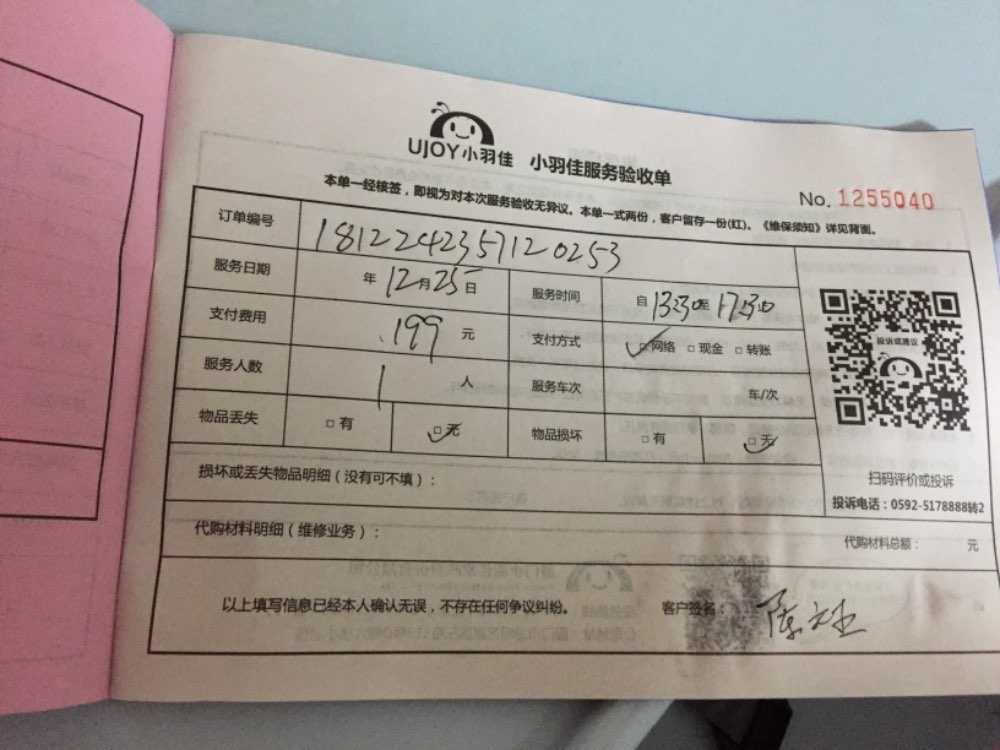 UJOY小羽佳 小羽佳服务验收单
No. 1255040
本单一经核签，即视为对本次服务验收无异议。本单一式两份，客户留存一份(红)。《维保须知》详见背面。
订单编号 1812242357120253
服务日期 年 12月25日 服务时间 自 13:30至 17:30止
支付费用 199 元 支付方式 ☑网络 □现金 □转账
服务人数 1 人 服务车次 车/次
物品丢失 □有 ☑无 物品损坏 □有 ☑无
投诉或建议
扫码评价或投诉
投诉电话：0592-5178888转2
损坏或丢失物品明细（没有可不填）：
代购材料明细（维修业务）： 代购材料总额： 元
以上填写信息已经本人确认无误，不存在任何争议纠纷。 客户签名：陈